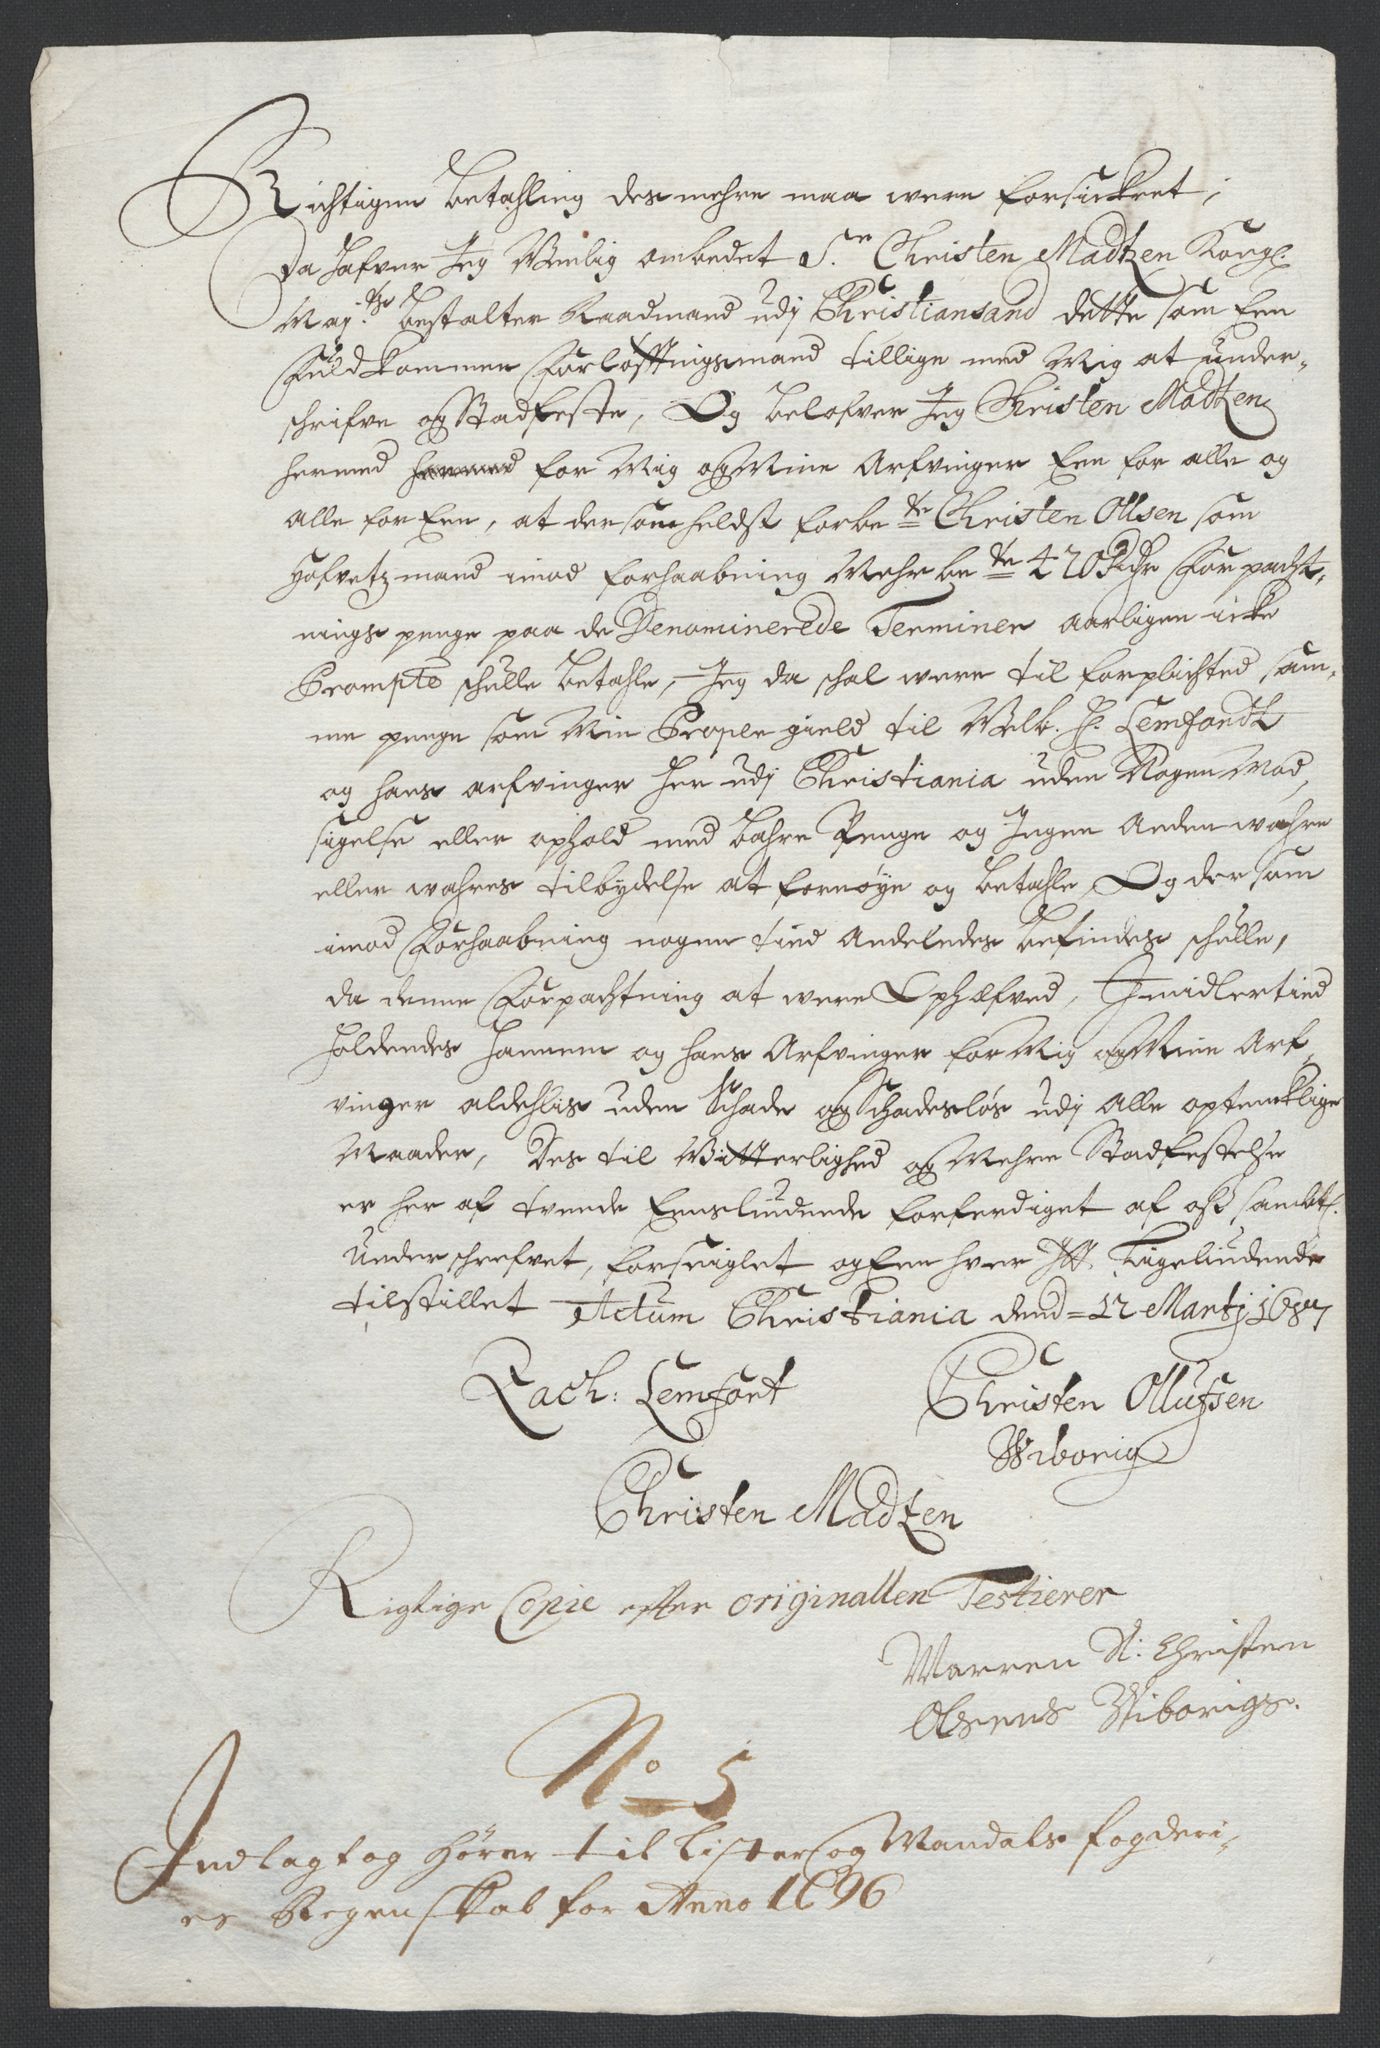 Richtigen betahling des mehre maa were forsickret,
Da hafver Jeg Venlig ombedet Sr. Christen Madtzen Kongl.
May:ts bestalter Raadmand udj Christiansand dette som Een
Fuldkommen Forløftningsmand tillige med Mig at under-
schrifve og Stadfeste, Og belofver Jeg Christen Madtzen
hermed for Mig og Mine Arfvinger Een for alle og
alle for Een, at dersom heldst forbete Christen Ollsen som
Hofvetzmand imod forhaabning Mehrbete 420 Rdr Forpacht-
nings penge paa de Denominerede Terminer aarligen icke
Prompte schulle betahle, Jeg da schal were til forplichted sam-
me penge som Min Propre gield til Velb. H. Lemfordt
og hans arfvinger her udj Christiania uden Nogen Mod-
sigelse eller ophold med bahre Penge og Ingen Anden wahre
eller wahres tilbydelse at fornøye og betahle, Og der som
imod Forhaabning nogen tied Andeledes befindes schulle,
da denne Forpachtning at were Ophæfved, Imidlertied
holdendes hannem og hans Arfvinger for Mig og Mine Arf-
vinger aldehlis uden Schade og Schadesløs udj Alle optenklige
Maader, Des til Vitterlighed og Mehre Stadfestelse
er her af tvende Eensludende forferdiget af oss samptl.
Underschrefvet, forseiglet og Een hver Ligeliudende
tilstillet Actum Christiania dend 12 Martzj 1687
Zach: Lemfort Christen Ollufsen
Wiborig
Christen Madtzen
Rigtige Copie efter originallen Testierer
Marren Sl: Christen
Olsens Wiborigs.
No 5
Indlagt og hører til Lister og Mandals fogderi-
es Regenskab for Anno 1696